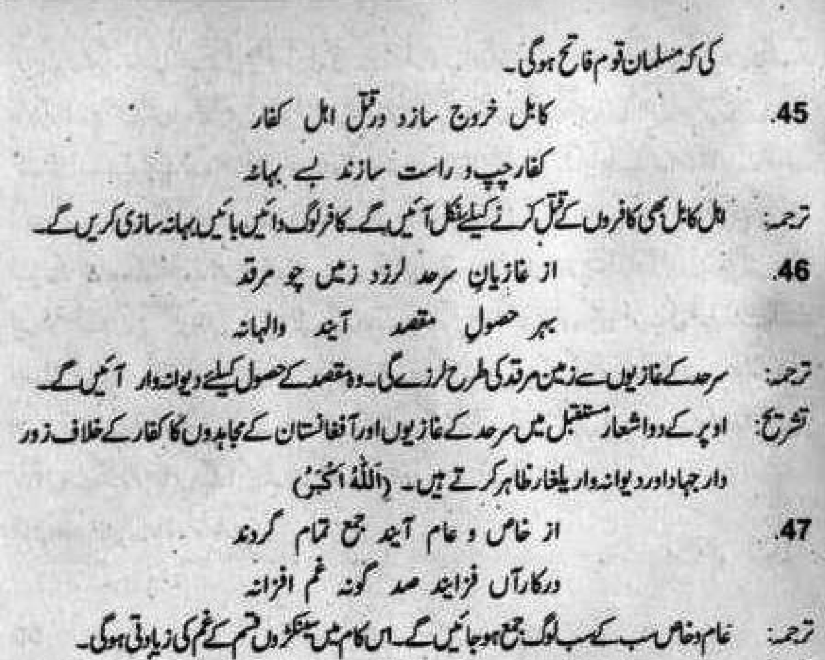 کی کہ مسلمان قوم فاتح ہوگی۔
45. کابل خروج سازد در قتل اہل کفار
کفار چپ و راست سازند بے بہانہ
ترجمہ: اہل کابل بھی کافروں کے قتل کرنے کیلئے نکل آئیں گے۔ کافر لوگ دائیں بائیں بہانہ سازی کریں گے۔
46. از غازیانِ سرحد لرزد زمیں چو مرقد
بہر حصولِ مقصد آیند والہانہ
ترجمہ: سرحد کے غازیوں سے زمین مرقد کی طرح لرزے گی۔ وہ مقصد کے حصول کیلئے دیوانہ وار آئیں گے۔
تشریح: اوپر کے دو اشعار مستقبل میں سرحد کے غازیوں اور آفغانستان کے مجاہدوں کا کفار کے خلاف زور
دار جہاد اور دیوانہ وار یلغار ظاہر کرتے ہیں۔ (اَللّٰهُ اَكْبَرُ)
47. از خاص و عام آیند جمع تمام گردند
درکارآں فزایند صد گونہ غم افزانہ
ترجمہ: عام و خاص سب کے سب لوگ جمع ہو جائیں گے۔ اس کام میں سینکڑوں قسم کے غم کی زیادتی ہوگی۔